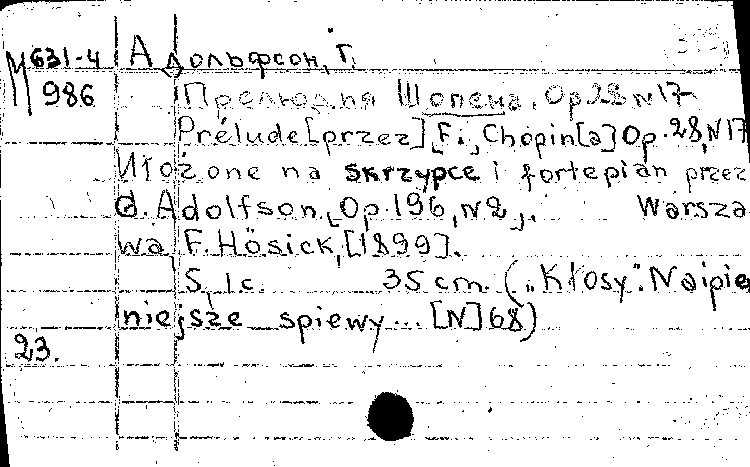 М631-4 Адольфсон, Г.
986 Прелюдия Шопена. Op 28 N17
Prélude [przez] F. Chopin[a] Op. 28, N17
Ułożone na skrzypce i fortepian przez
d. Adolfson. Op. 196, N2. Warsza
wa, F. Hösick, [1899].
S, 1 c. 35 cm. („Kłosy". Naipię
niejsze spiewy... [N] 68)
23.